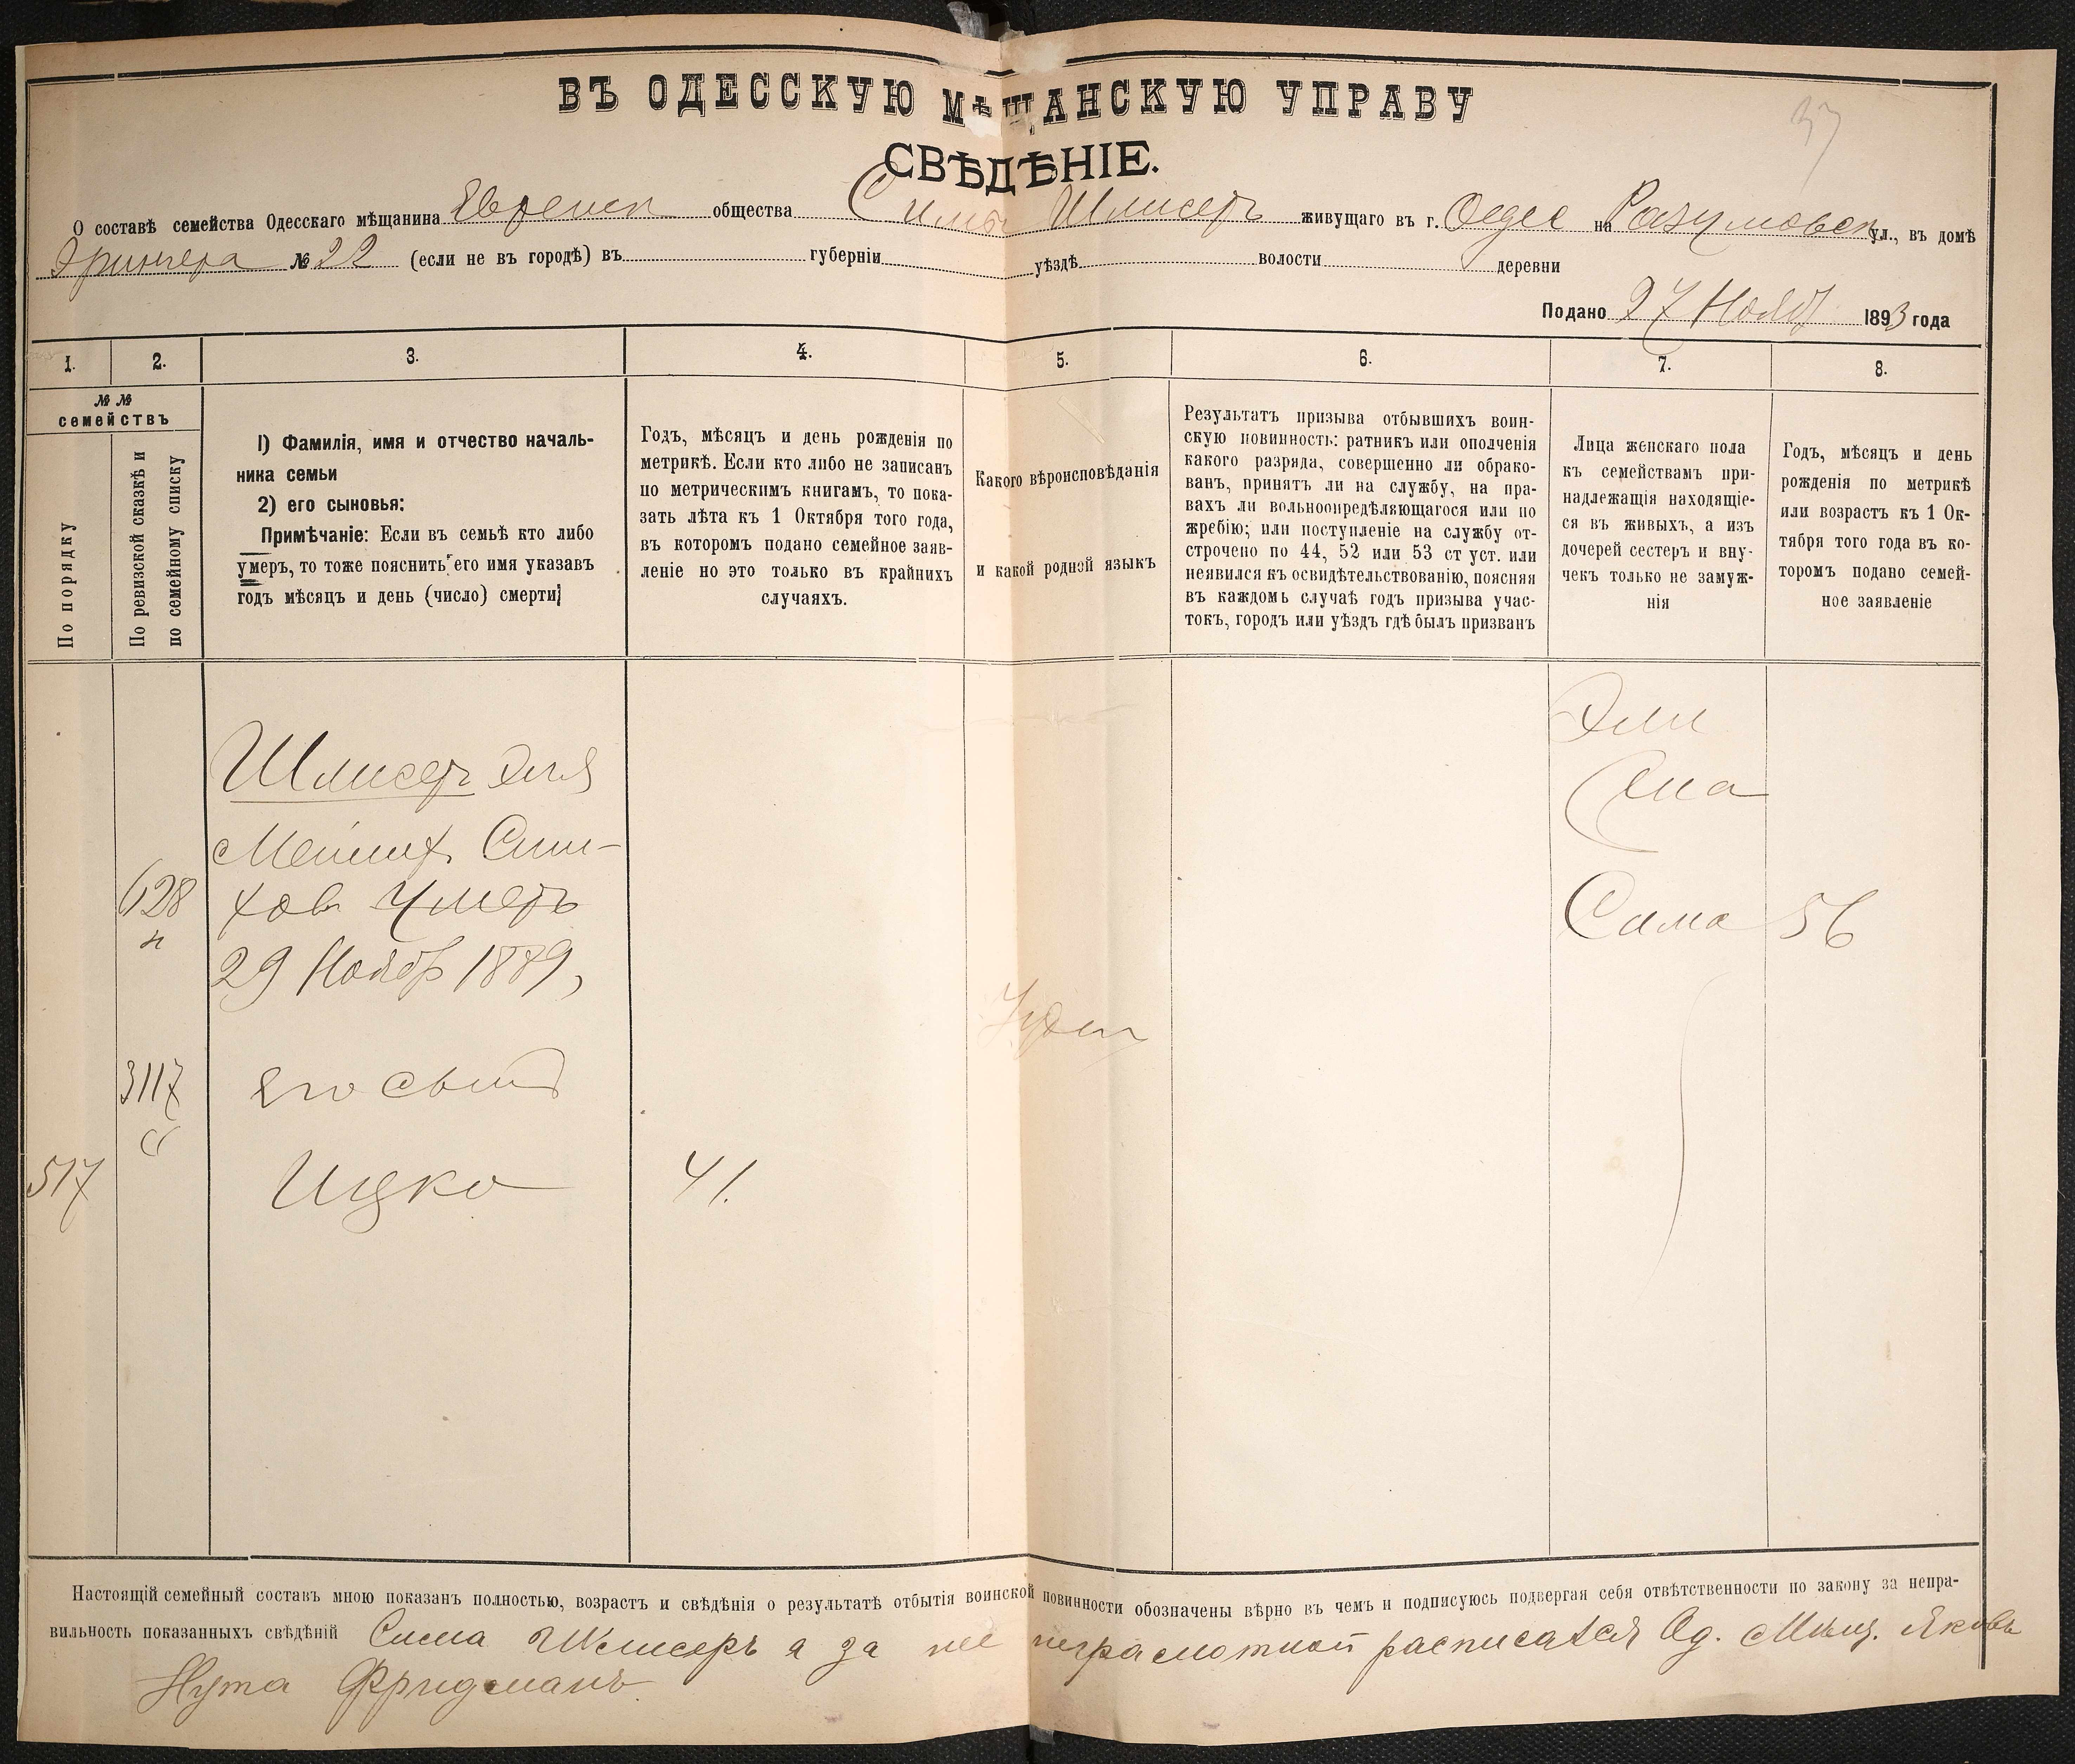 37
ВЪ ОДЕССКУЮ МѢЩАНСКУЮ УПРАВУ
СВѢДѢНІЕ.
О составѣ семейства Одесскаго мѣщанина Еврейск общества Симы Шлисеръ живущаго въ г. Одес на Разумовск ул., въ домѣ
№ 22 (если не въ городѣ) въ губерніи уѣздѣ волости деревни
Подано 27 Нояб 1893 года
1. 2. 3. 4. 5. 6. 7. 8.
№ №
семействъ
По порядку
По ревизской сказкѣ и
по семейному списку
1) Фамилія, имя и отчество началь-
ника семьи
2) его сыновья:
Примѣчаніе: Если въ семьѣ кто либо
умеръ, то тоже пояснить его имя указавъ
годъ мѣсяцъ и день (число) смерти;
Годъ, мѣсяцъ и день рожденія по
метрикѣ. Если кто либо не записанъ
по метрическимъ книгамъ, то пока-
зать лѣта къ 1 Октября того года,
въ которомъ подано семейное заяв-
леніе но это только въ крайнихъ
случаяхъ.
Какого вѣроисповѣданія
и какой родной языкъ
Результатъ призыва отбывшихъ воин-
скую повинность: ратникъ или ополченія
какого разряда, совершенно ли обрако-
ванъ, принятъ ли на службу, на пра-
вахъ ли вольноопредѣляющагося или по
жребію; или поступленіе на службу от-
строчено по 44, 52 или 53 ст уст. или
неявился къ освидѣтельствованію, поясняя
въ каждомъ случаѣ годъ призыва учас-
токъ, городъ или уѣздъ гдѣ былъ призванъ
Лица женскаго пола
къ семействамъ при-
надлежащія находящіе-
ся въ живыхъ, а изъ
дочерей сестеръ и вну-
чекъ только не замуж-
нія
Годъ, мѣсяцъ и день
рожденія по метрикѣ
или возрастъ къ 1 Ок-
тября того года въ ко-
торомъ подано семей-
ное заявленіе
Шлисеръ Эля
Сим-
628 хов Умеръ
29 Нояб 1889,
Эли
Жена
Сима 56
Іудей
3117 Его сынъ
517 Ицко 41.
Настоящій семейный составъ мною показанъ полностью, возрастъ и свѣдѣнія о результатѣ отбытія воинской повинности обозначены вѣрно въ чемъ и подписуюсь подвергая себя отвѣтственности по закону за непра-
вильность показанныхъ свѣдѣній Сима Шлисеръ а за нее неграмотной расписался Од. Мѣщ. Яковъ
Нута Фридманъ